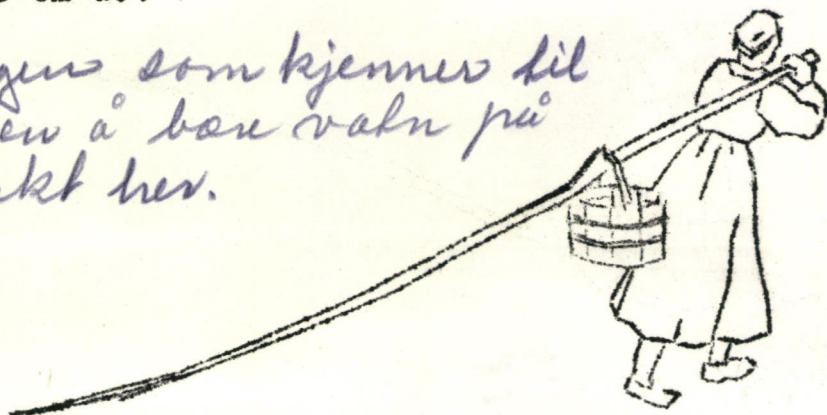 gen som kjenner til
en å bære vatn på
kt her.